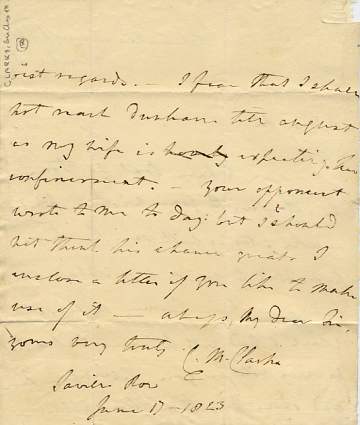 regards. — I fear that I shall
not reach Durham till August
as my wife is hourly expecting her
confinement. — Your opponent
wrote to me to day: but I should
not think his chance great. I
enclose a letter if you like to make
use of it — always, My Dear Sir,
yours very truly C. M. Clarke
Saville Row
June 17 — 1823